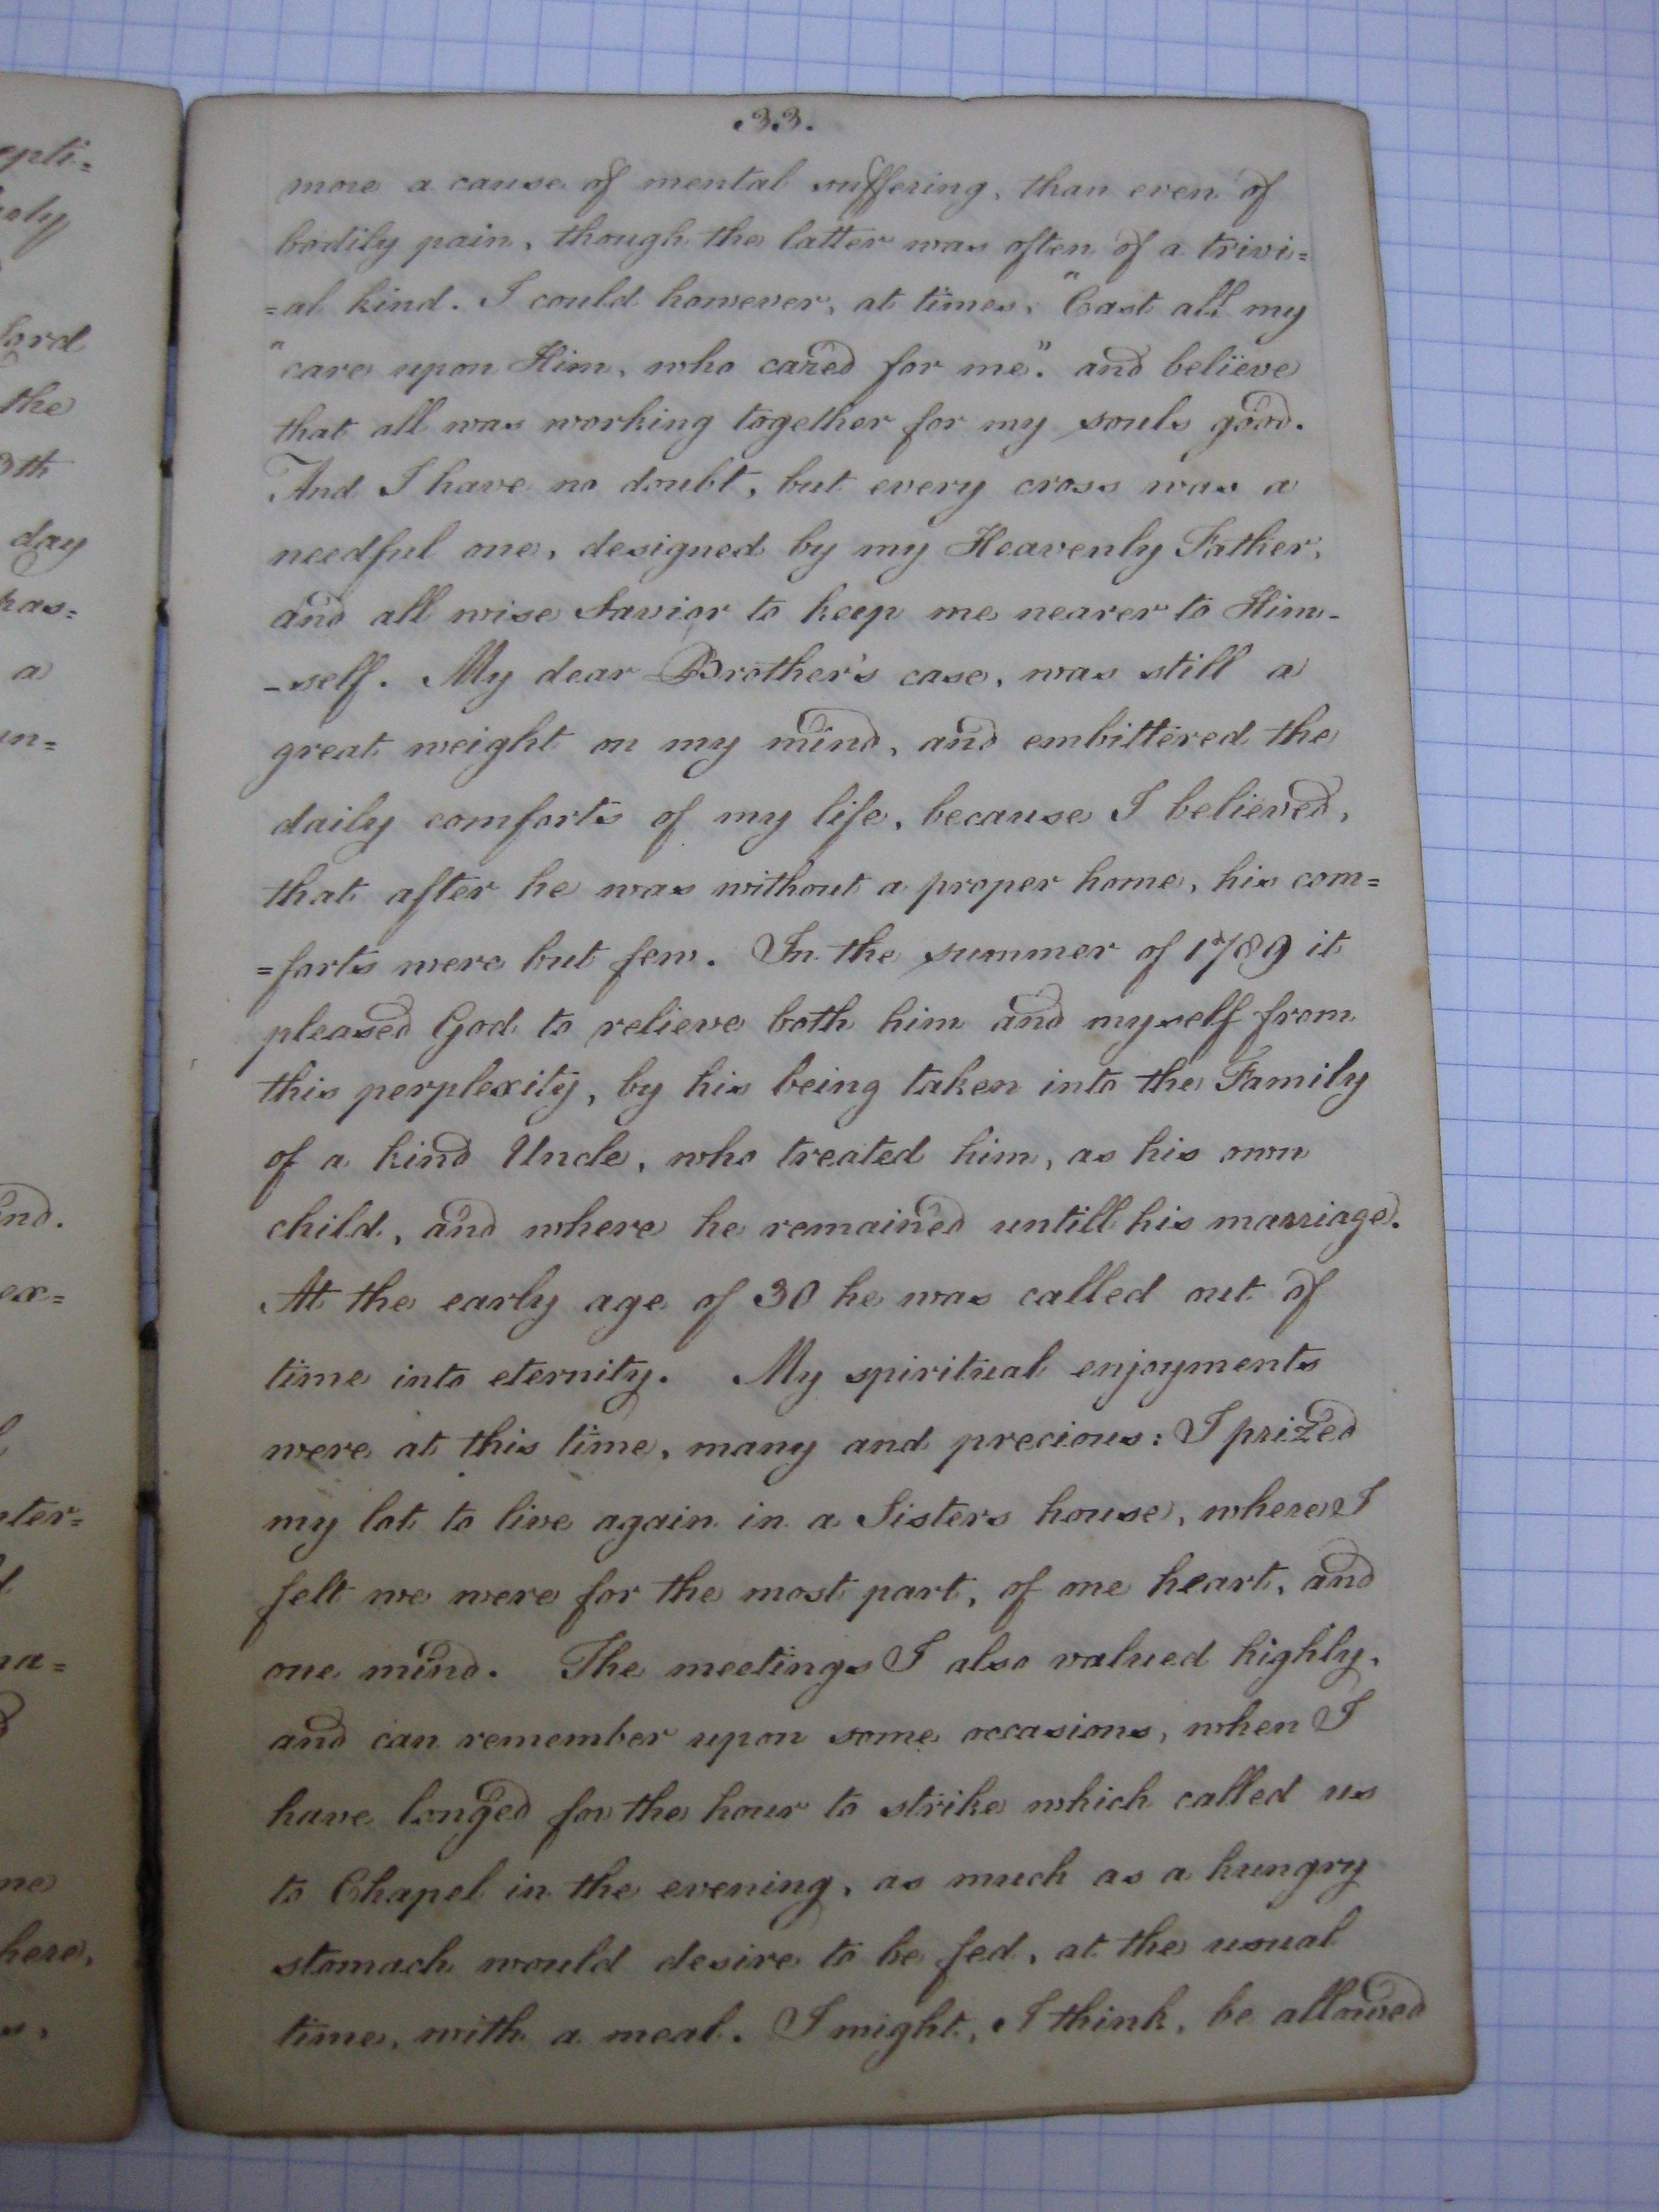 33.
more a cause of mental suffering, than even of
bodily pain, though the latter was often of a trivi=
=al kind. I could however, at times, "Cast all my
"care upon Him, who cared for me". and believe
that all was working together for my souls good.
And I have no doubt, but every cross was a
needful one, designed by my Heavenly Father,
and all wise Savior to keep me nearer to Him-
-self. My dear Brother's case, was still a
great weight on my mind, and embittered the
daily comforts of my life, because I believed,
that after he was without a proper home, his com=
=forts were but few. In the summer of 1789 it
pleased God to relieve both him and myself from
this perplexity, by his being taken into the Family
of a kind Uncle, who treated him, as his own
child, and where he remained untill his marriage.
At the early age of 30 he was called out of
time into eternity. My spiritual enjoyments
were at this time, many and precious: I prized
my lot to live again in a Sisters house, where I
felt we were for the most part, of one heart, and
one mind. The meetings I also valued highly,
and can remember upon some occasions, when I
have longed for the hour to strike which called us
to Chapel in the evening, as much as a hungry
stomach would desire to be fed, at the usual
time, with a meal. I might, I think, be allowed